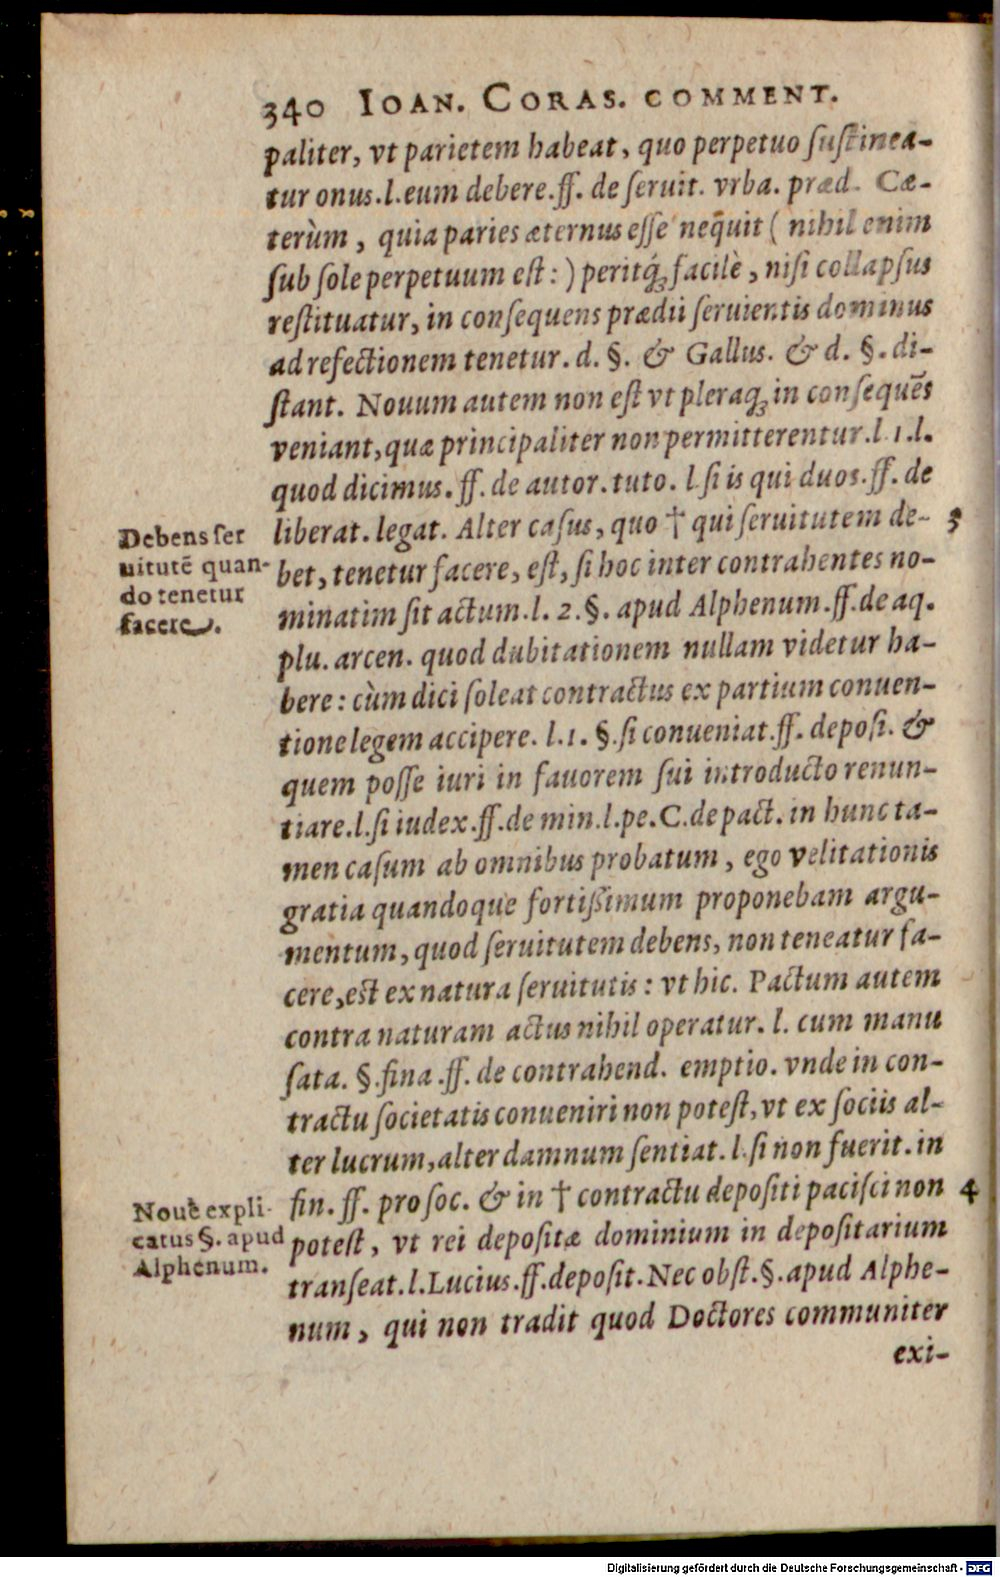 340 IOAN. CORAS. COMMENT.
paliter, vt parietem habeat, quo perpetuo ſuſtinea-
tur onus. l. eum debere. ff. de ſeruit. vrba. præd. Cæ-
terùm, quia paries æternus eſſe neq̃uit ( nihil enim
ſub ſole perpetuum eſt: ) peritq́; facilè, niſi collapſus
reſtituatur, in conſequens prædii ſeruientis dominus
ad refectionem tenetur. d. §. & Gallus. & d. §. di-
ſtant. Nouum autem non eſt vt pleraq; in conſequẽs
veniant, quæ principaliter non permitterentur. l. 1. l.
quod dicimus. ff. de autor. tuto. l. ſi is qui duos. ff. de
Debens ſer
uitutẽ quan-
do tenetur
facere.
liberat. legat. Alter caſus, quo † qui ſeruitutem de- 3
bet, tenetur facere, eſt, ſi hoc inter contrahentes no-
minatim ſit actum. l. 2. §. apud Alphenum. ff. de aq.
plu. arcen. quod dubitationem nullam videtur ha-
bere: cùm dici ſoleat contractus ex partium conuen-
tione legem accipere. l. 1. §. ſi conueniat. ff. depoſi. &
quem poſſe iuri in fauorem ſui introducto renun-
tiare. l. ſi iudex. ff. de min. l. pe. C. de pact. in hunc ta-
men caſum ab omnibus probatum, ego velitationis
gratia quandoque fortiſſimum proponebam argu-
mentum, quod ſeruitutem debens, non teneatur fa-
cere, eſt ex natura ſeruitutis: vt hic. Pactum autem
contra naturam actus nihil operatur. l. cum manu
ſata. §. fina. ff. de contrahend. emptio. vnde in con-
tractu societatis conueniri non poteſt, vt ex ſociis al-
ter lucrum, alter damnum ſentiat. l. ſi non fuerit. in
Nouè expli-
catus §. apud
Alphenum.
fin. ff. pro ſoc. & in † contractu depoſiti paciſci non 4
poteſt, vt rei depoſitæ dominium in depoſitarium
tranſeat. l. Lucius. ff. depoſit. Nec obſt. §. apud Alphe-
num, qui non tradit quod Doctores communiter
exi-
Digitalisierung gefördert durch die Deutsche Forschungsgemeinschaft - DFG